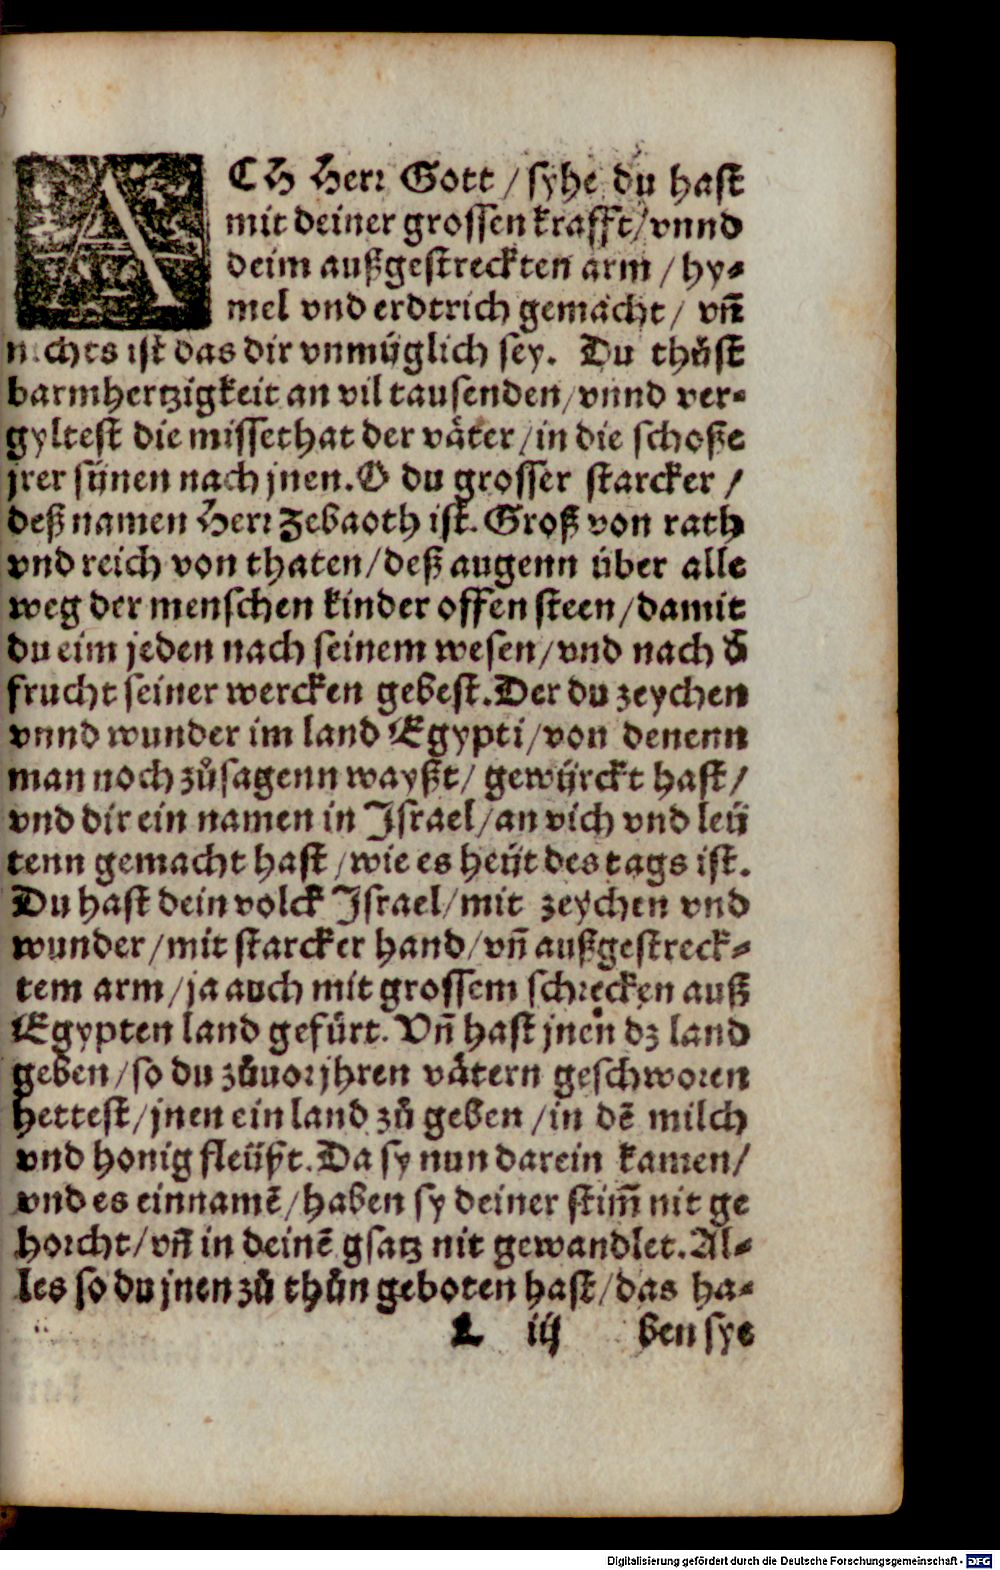 ACH Herr Gott / syhe du hast
mit deiner grossen krafft / vnnd
deim außgestreckten arm / hy-
mel vnd erdtrich gemacht / vñ
nichts ist das dir vnmüglich sey. Du thůst
barmhertzigkeit an vil tausenden / vnnd ver-
gyltest die missethat der väter / in die schoße
jrer sünen nach jnen. O du grosser starcker /
deß namen Herr Zebaoth ist. Groß von rath
vnd reich von thaten / deß augenn über alle
weg der menschen kinder offen steen / damit
du eim jeden nach seinem wesen / vnd nach d̄
frucht seiner wercken gebest. Der du zeychen
vnnd wunder im land Egypti / von denenn
man noch zůsagenn wayßt / gewürckt hast /
vnd dir ein namen in Israel / an vich vnd leü
tenn gemacht hast / wie es heüt des tags ist.
Du hast dein volck Israel / mit zeychen vnd
wunder / mit starcker hand / vñ außgestreck-
tem arm / ja auch mit grossem schrecken auß
Egypten land gefürt. Vñ hast jnen dz land
geben / so du zůuor jhren vätern geschworen
hettest / jnen ein land zů geben / in dē milch
vnd honig fleüßt. Da sy nun darein kamen /
vnd es einnamē / haben sy deiner stim̄ nit ge
horcht / vñ in deinē gsatz nit gewandlet. Al-
les so du jnen zů thůn geboten hast / das ha-
L iij ben sye
Digitalisierung gefördert durch die Deutsche Forschungsgemeinschaft - DFG